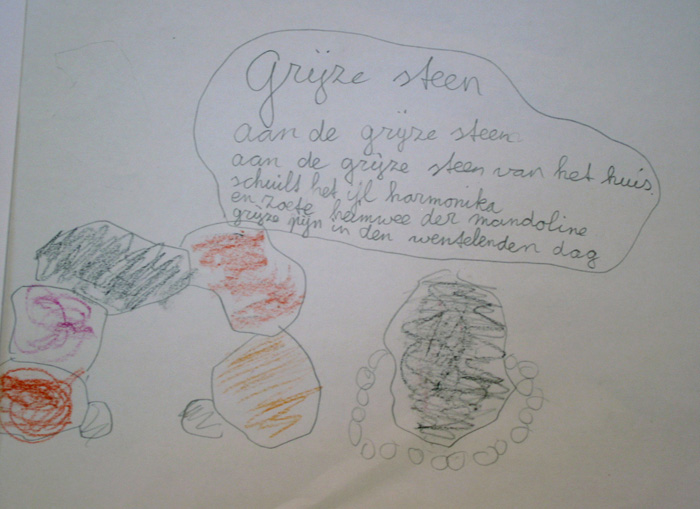 Grijze steen
aan de grijze steen
aan de grijze steen van het huis.
schuilt het ijl harmonika
en zoete heimwee der mandoline
grijze pijn in den wentelenden dag